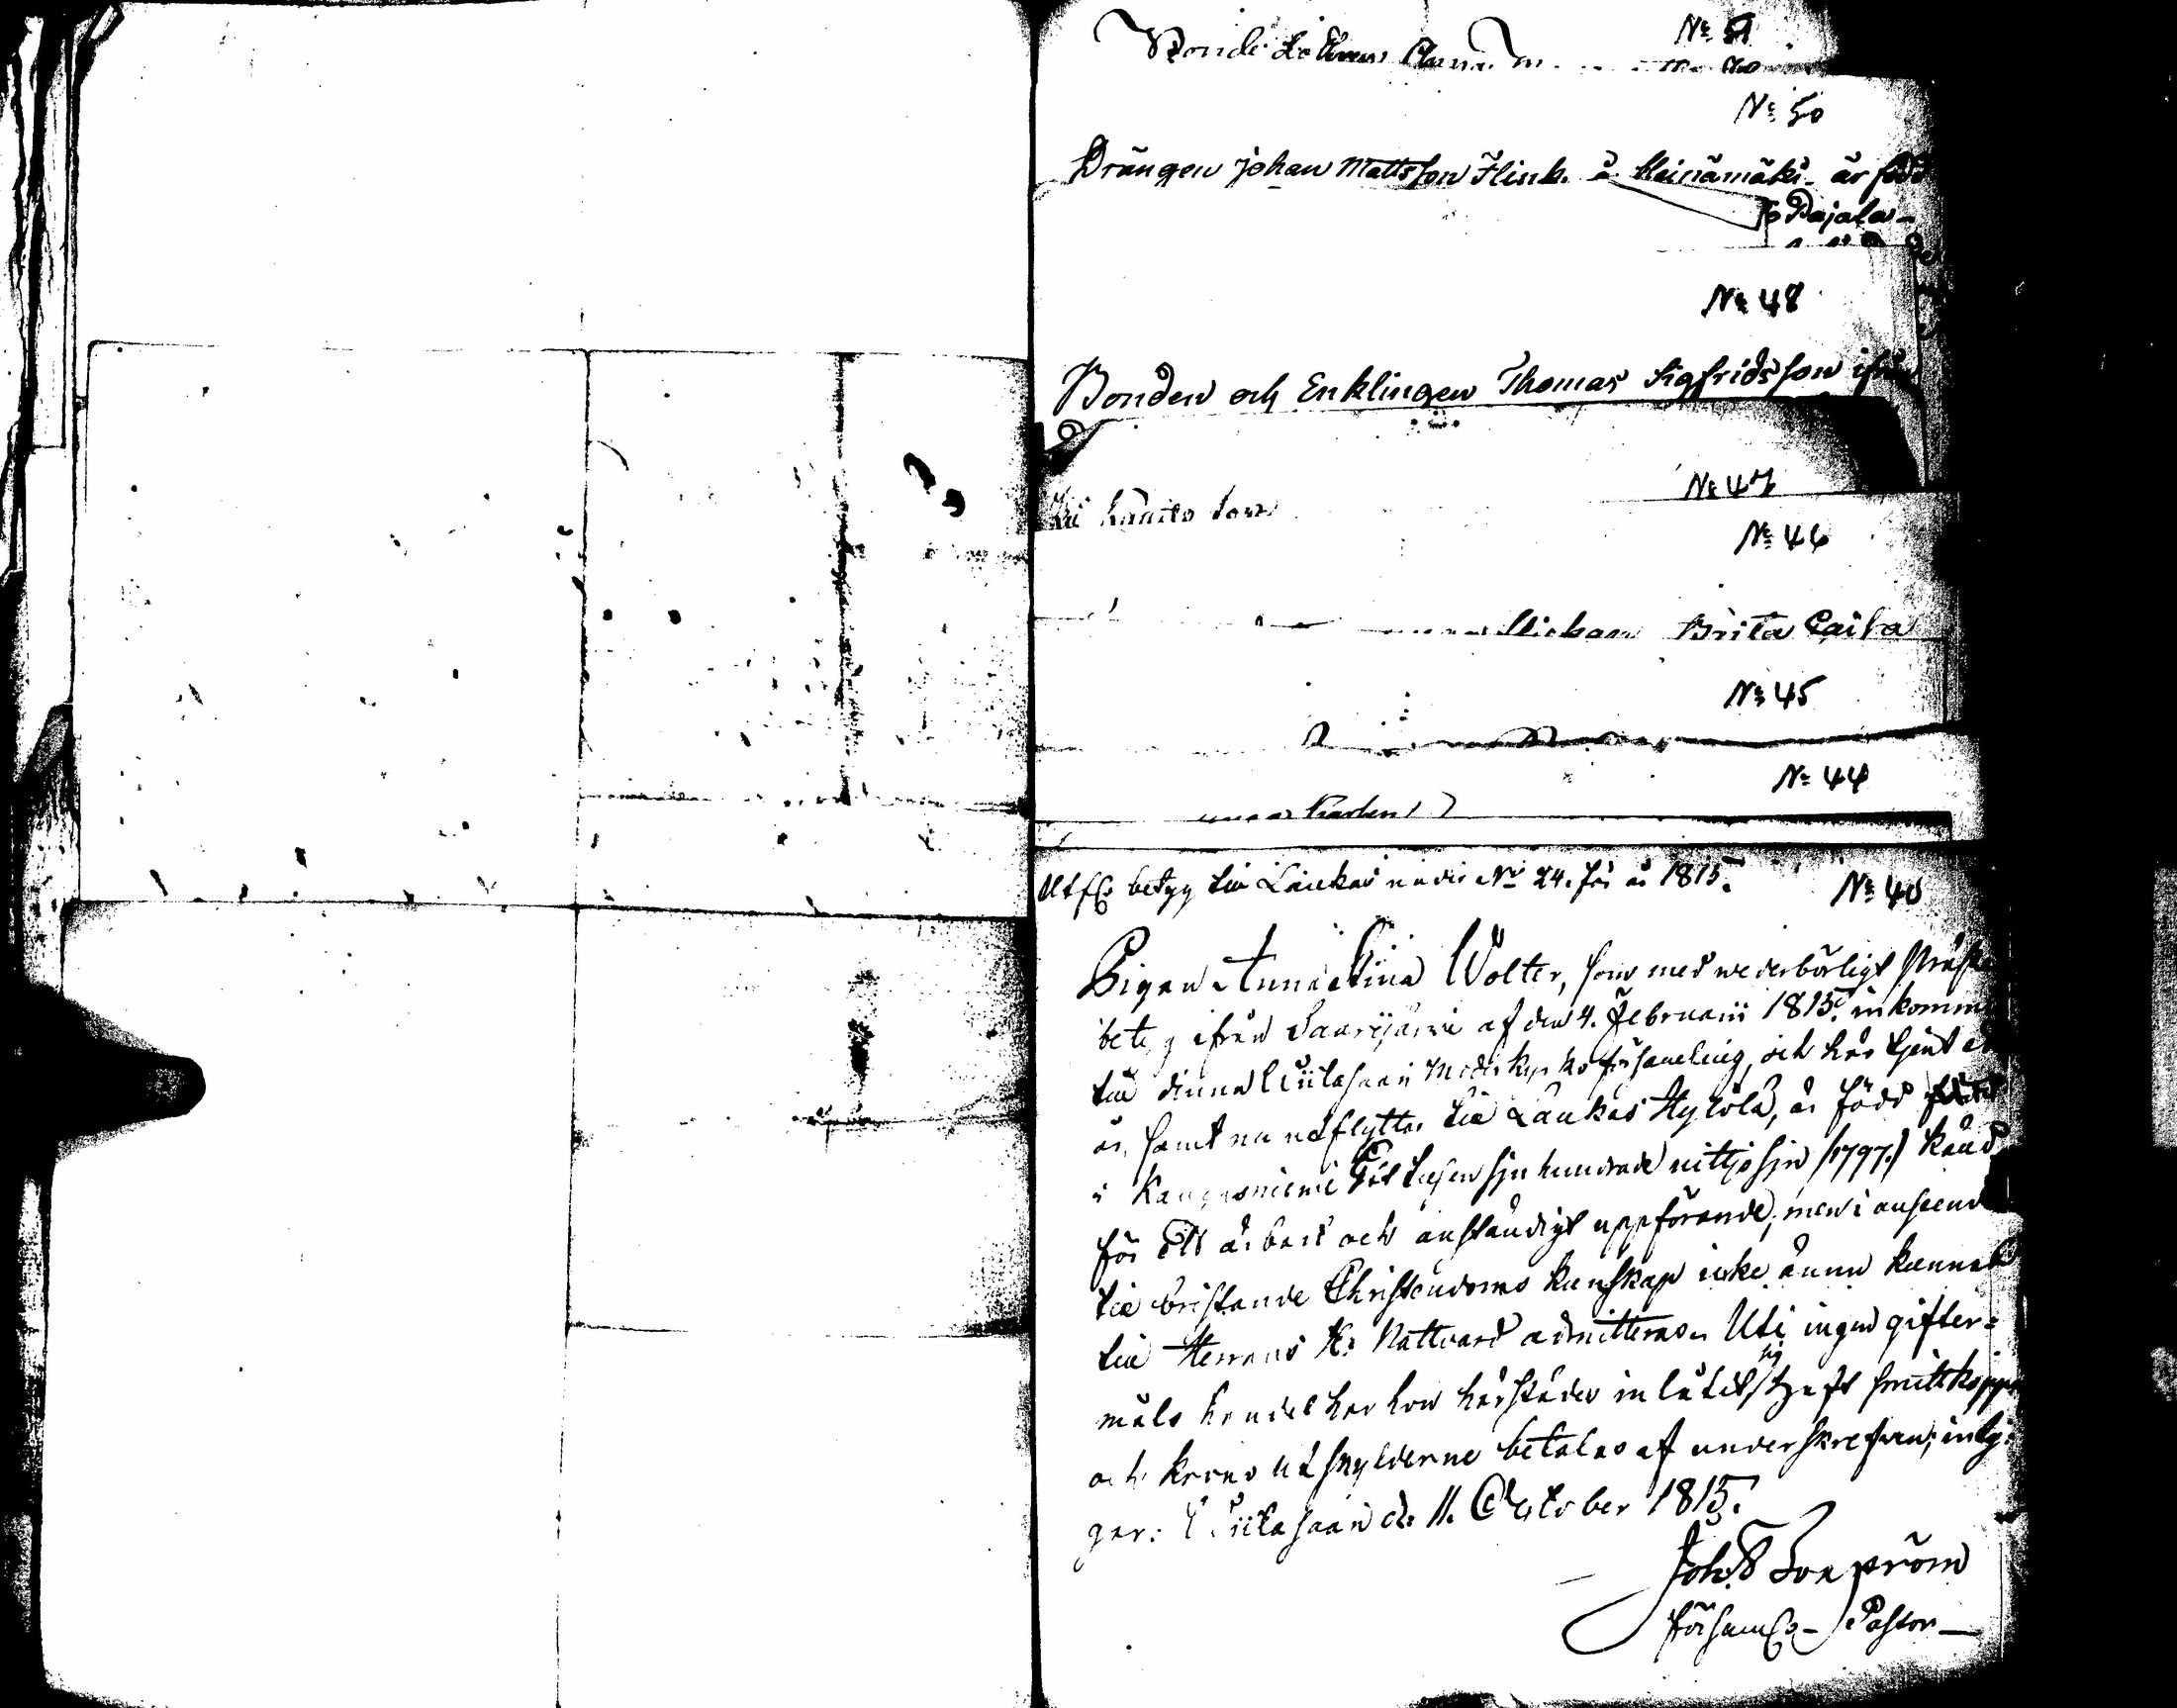 No 51
Bonde
No 50
Drängen Johan Mattsson Flink. å Heinämäki är född
Pajala
No 48
Bonden och Enklingen Thomas Sigfridsson ifrån
No 47
No 46
Brita Caisa
No 45
No 44
betyg til Laukas under No 24. för år 1815.
No 40
Pigan Anna Stina Wolter, som med wederbörligt
ifrån Saarijärvi af den 4. Februarii 1815. inkommit
til denna Wiitasaari Moderkyrko församling, och här tjent
år, samt nu afflyttar til Laukas Hytölä, är född
i Kangasniemi Ett tusen sju hundrade nittjo sju (1797.) känd
för ett ärbart och anständigt uppförande; men i anseende
til bristande Christendoms kunskap icke ännu kunnat
til Herrans H. Nattvard admitteras. Uti ingen gifter=
måls handel har hon härstädes inlåtit sig haft smittkoppor
och krono utskylderne betalas af underskrefven; intygar
Wiitasaari d. 11. October 1815.
Joh.
Pastor